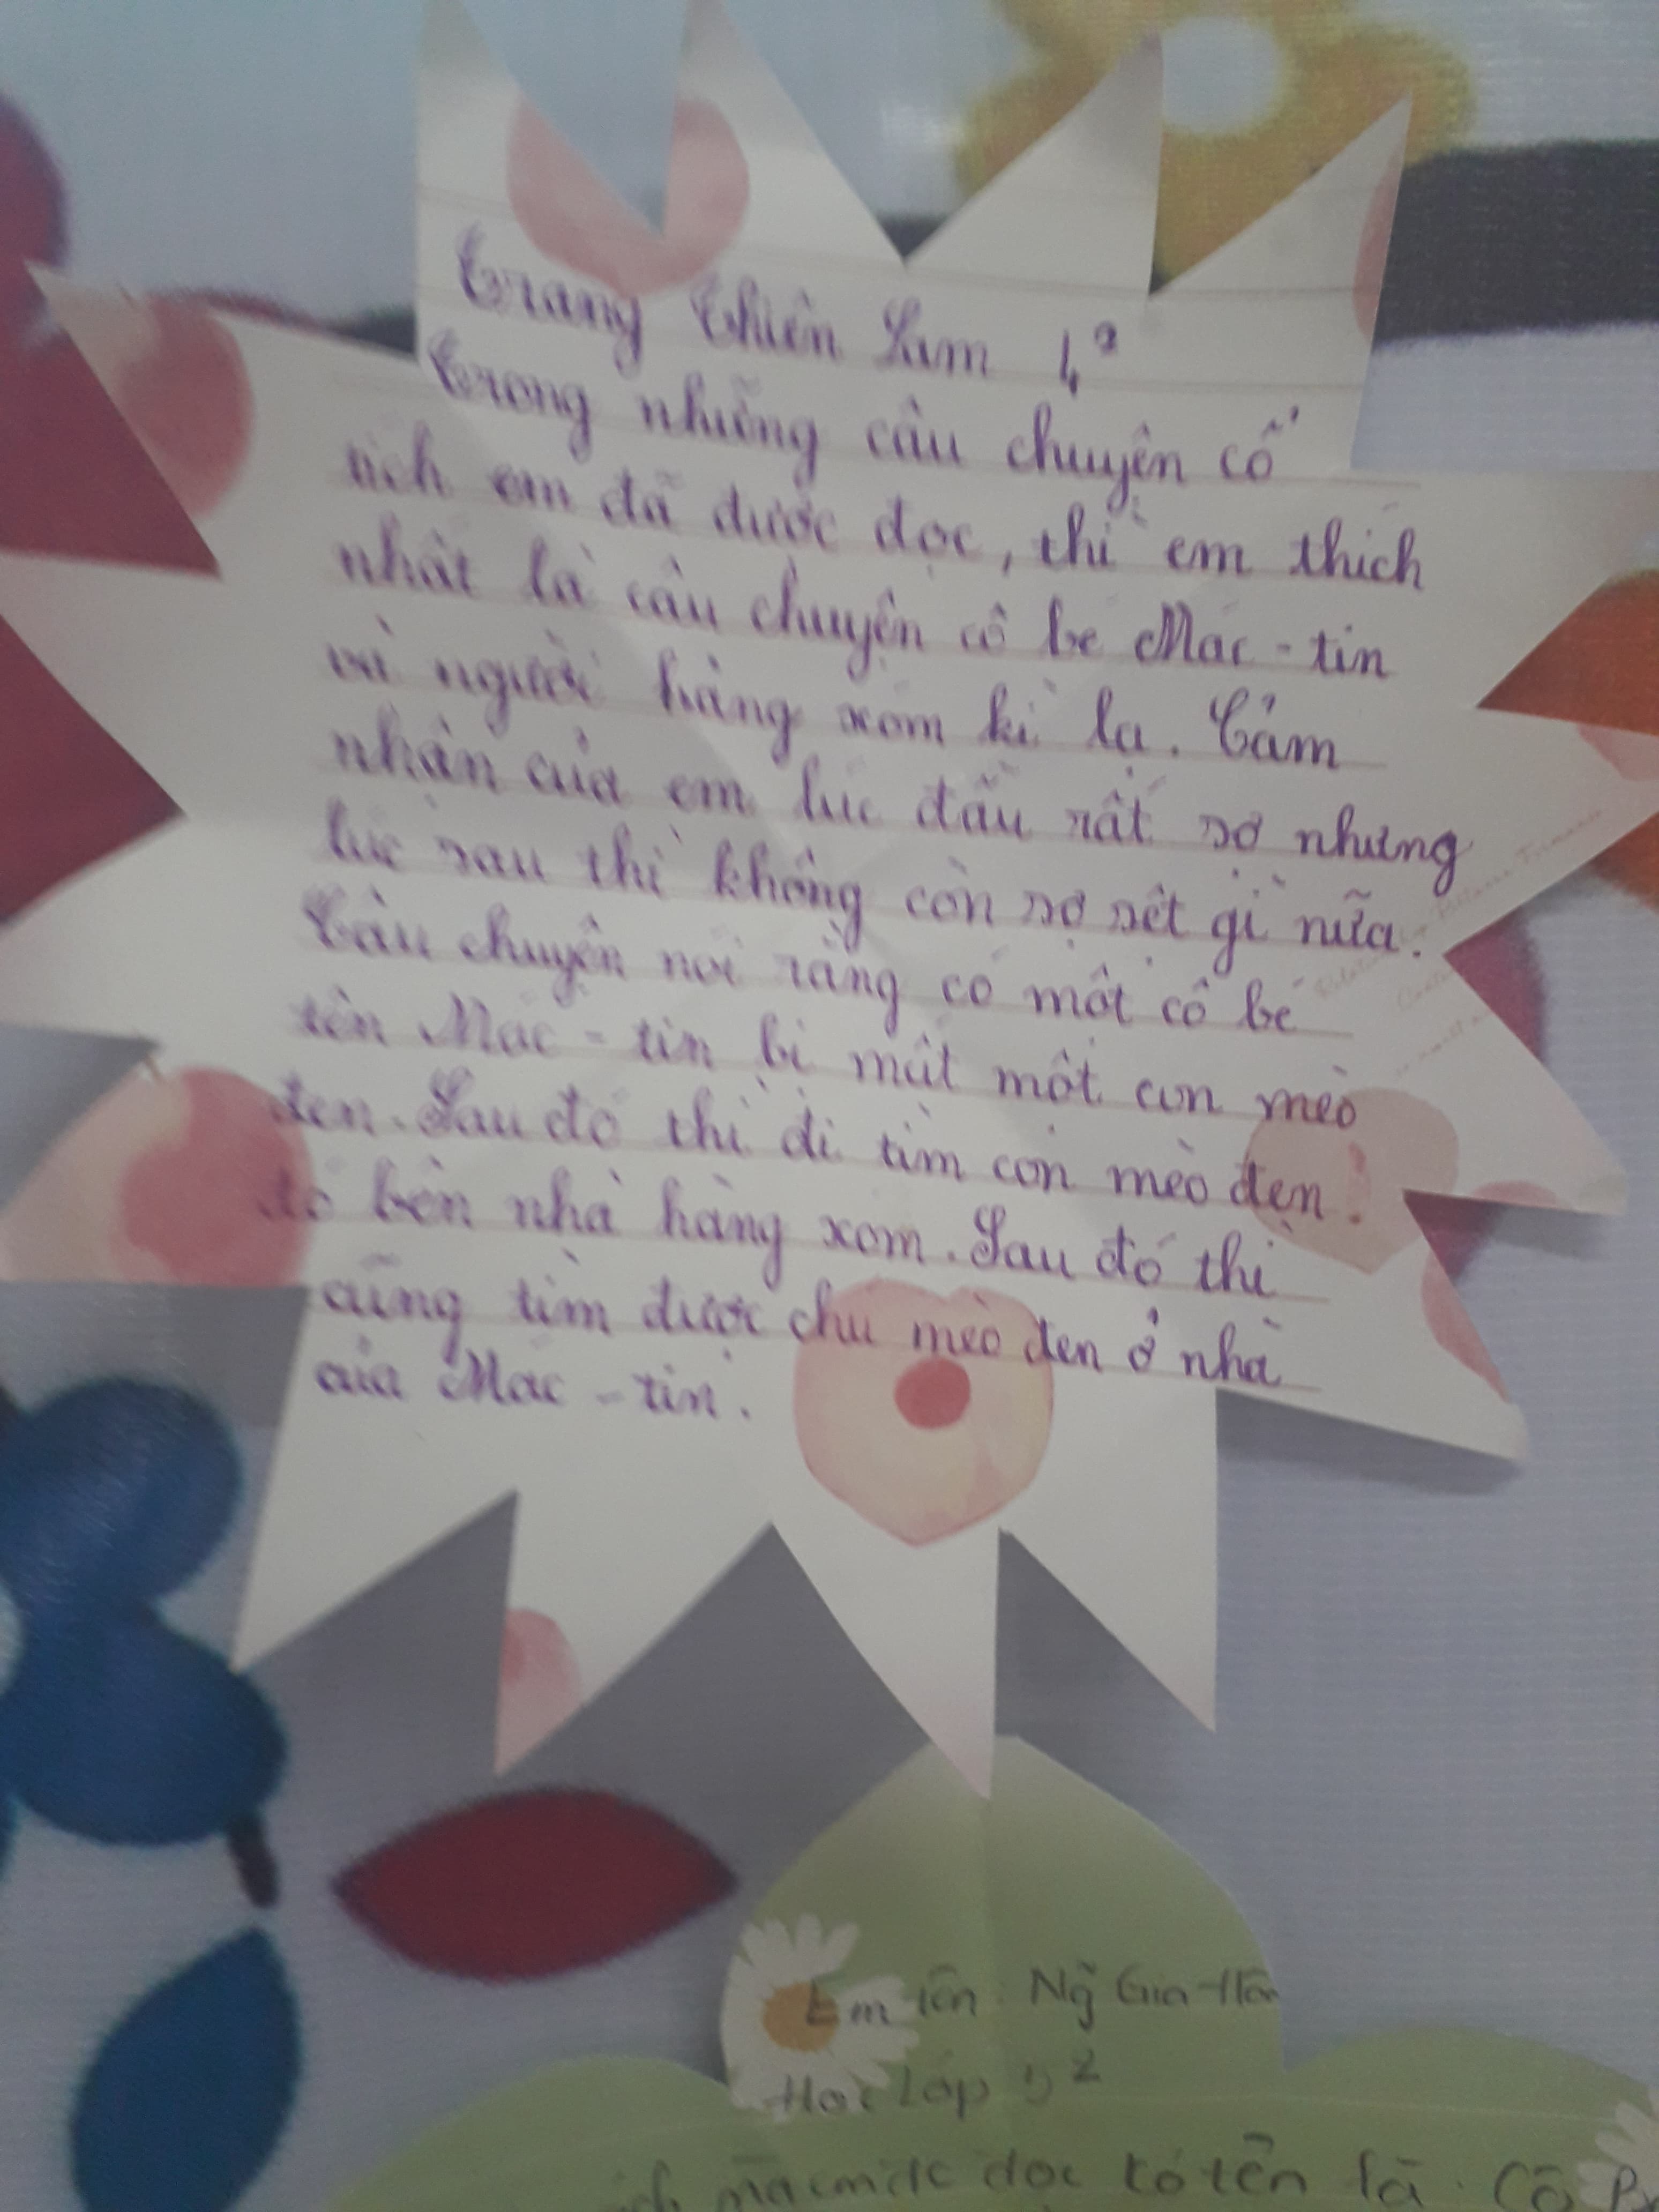 Trang Thiên Lam 4²
Trong những câu chuyện cổ
tích em đã được đọc, thì em thích
nhất là câu chuyện cô bé Mác-tin
và người hàng xóm kì lạ. Cảm
nhận của em lúc đầu rất sợ nhưng
lúc sau thì không còn sợ sệt gì nữa.
Câu chuyện nói rằng có một cô bé
tên Mác-tin bị mất một con mèo
đen. Sau đó thì đi tìm con mèo đen
đó bên nhà hàng xóm. Sau đó thì
cũng tìm được chú mèo đen ở nhà
của Mác-tin.
Em tên: Ng̃ Gia Hân
Học Lớp 5²
đọc có tên là: Cô